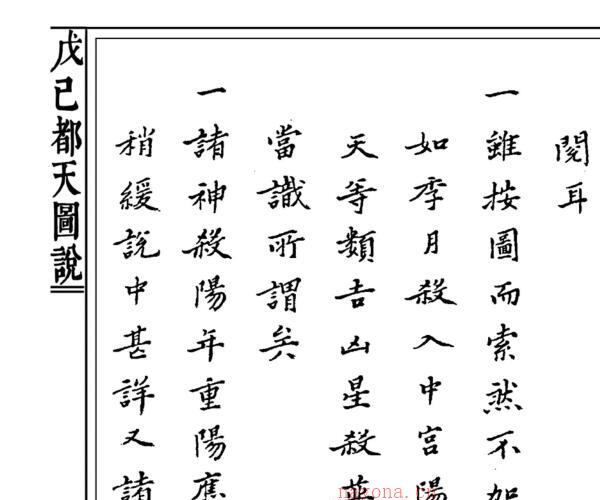 閱耳
一雖按圖而索然不如
如季月殺入中宮陽
天等類吉凶星殺
當識所謂矣
一諸神殺陽年重陽應
稍緩說中甚詳又諸
戊己都天圖說